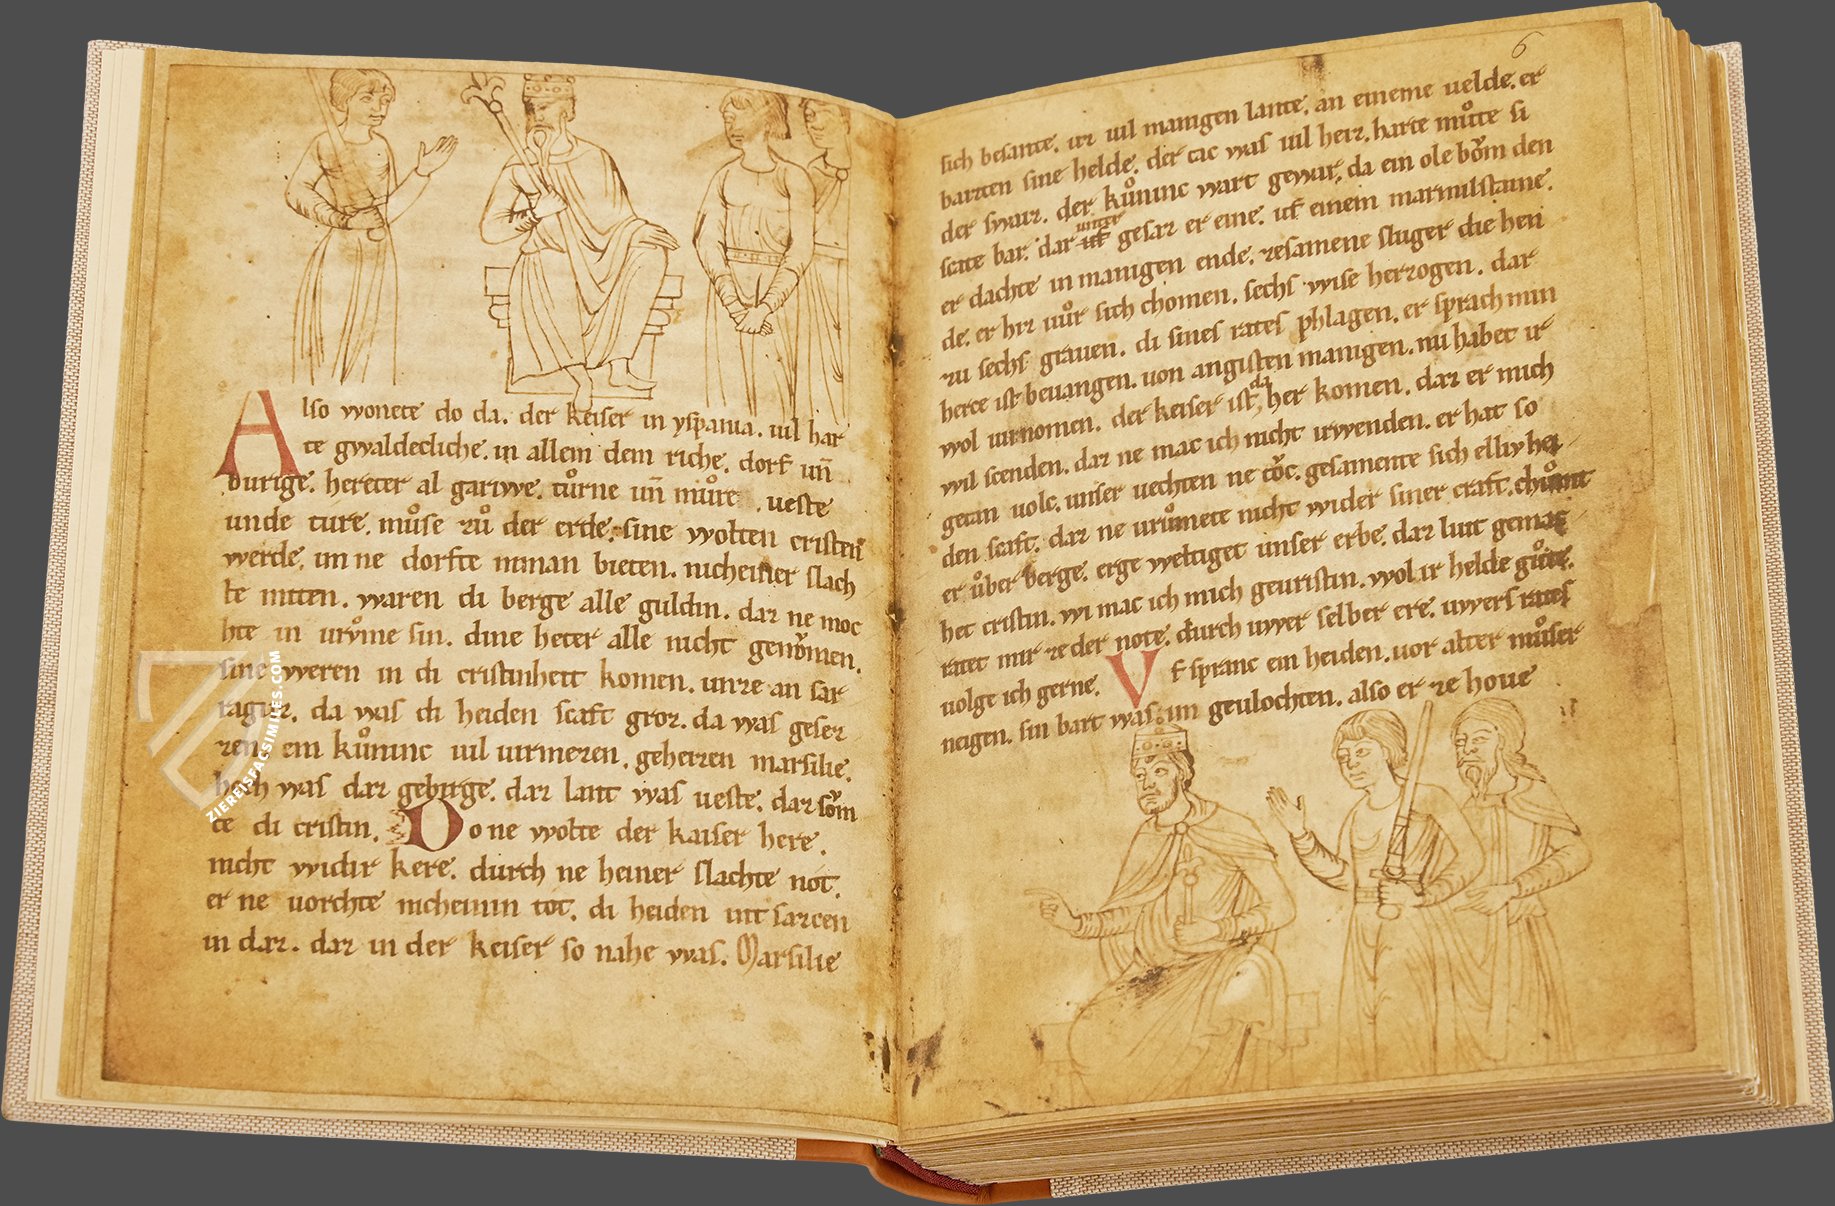 Also wonete do da. der keiser in yspania. uil har
te gwaldecliche. in allem dem riche. dorf uñ
burige. hereter al garwe. tuͦrne uñ muͦre ueste
unde ture. muͦse zuͦ der erde. sine wolten cristen
werde. im ne dorfte niman bieten. nicheiner slach
te miten. waren di berge alle guldin. daz ne moc
hte in uruͦme sin. dine heter alle nicht genoͮmen.
sine weren in di cristinheit komen. unze an sar
ragūz. da was di heiden scaft groz. da was gesez
zen. ein kuͦninc uil uirmezen. geheizen marsilie.
hoch was daz gebirge. daz lant was ueste. daz soͮm
te di cristin. Do ne wolte der kaiser here.
nicht widir kere. durch ne heiner slachte not.
er ne uorchte nicheinin tot. di heiden int sazcen
in daz. daz in der keiser so nahe was. Marsilie
6
sich besante. uz uil manigen lante. an eineme uelde. er
barten sine helde. der tac was uil heiz. harte muͦte si
der sweiz. der kuͦninc wart gewar. da ein ole boͮm den
scate bar. dar unter gesaz er eine. uf einem marmilstaine.
er dachte in manigen ende. zesamene sluger die hen
de. er hiz uuͦr sich chomen. sechs wise herzogen. dar
zu sechs grauen. di sines rates phlagen. er sprach min
herce ist beuangen. uon angisten manigen. nu habet ir
wol uirnomen. der keiser ist da her komen. daz er mich
wil scenden. daz ne mac ich nicht irwenden. er hat so
getan uolc. unser uechten ne toͮc. gesamente sich elliv hei
den scaft. daz ne uruͦmete nicht wider siner craft. chuͦmit
er uͦber berge. er ge weltiget unser erbe. daz lūt gemac
het cristin. wi mac ich mich geuristin. wol ir helde guͦte.
ratet mir ze der note. durch uwer selber ere. uwers rates
uolge ich gerne. Vf spranc ein heiden. uor alter muͦser
neigen. sin bart was im geulochten. also er ze houe
ZIEREISFACSIMILES.COM